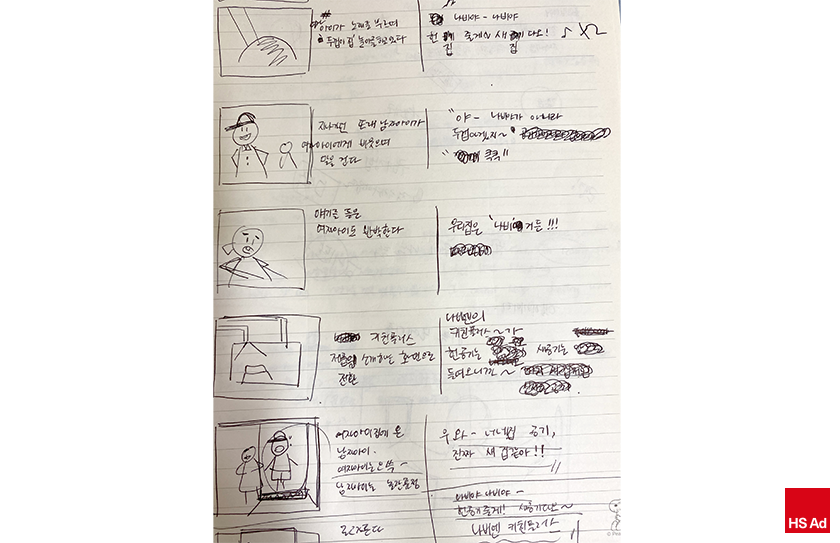 아이가 노래를 부르며
두껍이집 놀이를 하고 있다
나비야 - 나비야
헌 집 줄게~ 새 집 다오!
지나가던 또래 남자아이가
여자아이에게 비웃으며
말을 건다
"야 - 나비야가 아니라
두껍아겠지~
" 큭큭"
얘기를 들은
여자아이도 반박한다
우리집은 '나비'거든!!!
키친플러스
소개하는 화면으로
전환
나비엔의
키친플러스~가
헌공기는
새공기는
들여오니깐~
여자아이집에 온
남자아이.
여자아이는 으쓱~
남자아이는 놀란표정
우와~ 너네집 공기,
진짜 새 집같아!!
나비야 나비야~
헌공기줄게! 새공기다오~
나비엔 키친플러스
HS Ad